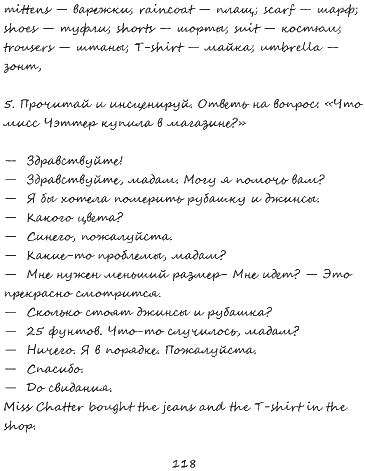 mittens — варежки; raincoat — плащ; scarf — шарф;
shoes — туфли; shorts — шорты; suit — костюм;
trousers — штаны; T-shirt — майка; umbrella —
зонт,
5. Прочитай и инсценируй. Ответь на вопрос: «Что
мисс Чэттер купила в магазине?»
— Здравствуйте!
— Здравствуйте, мадам. Могу я помочь вам?
— Я бы хотела померить рубашку и джинсы.
— Какого цвета?
— Синего, пожалуйста.
— Какие-то проблемы, мадам?
— Мне нужен меньший размер- Мне идет? — Это
прекрасно смотрится.
— Сколько стоят джинсы и рубашка?
— 25 фунтов. Что-то случилось, мадам?
— Ничего. Я в порядке. Пожалуйста.
— Спасибо.
— До свидания.
Miss Chatter bought the jeans and the T-shirt in the
shop.
118